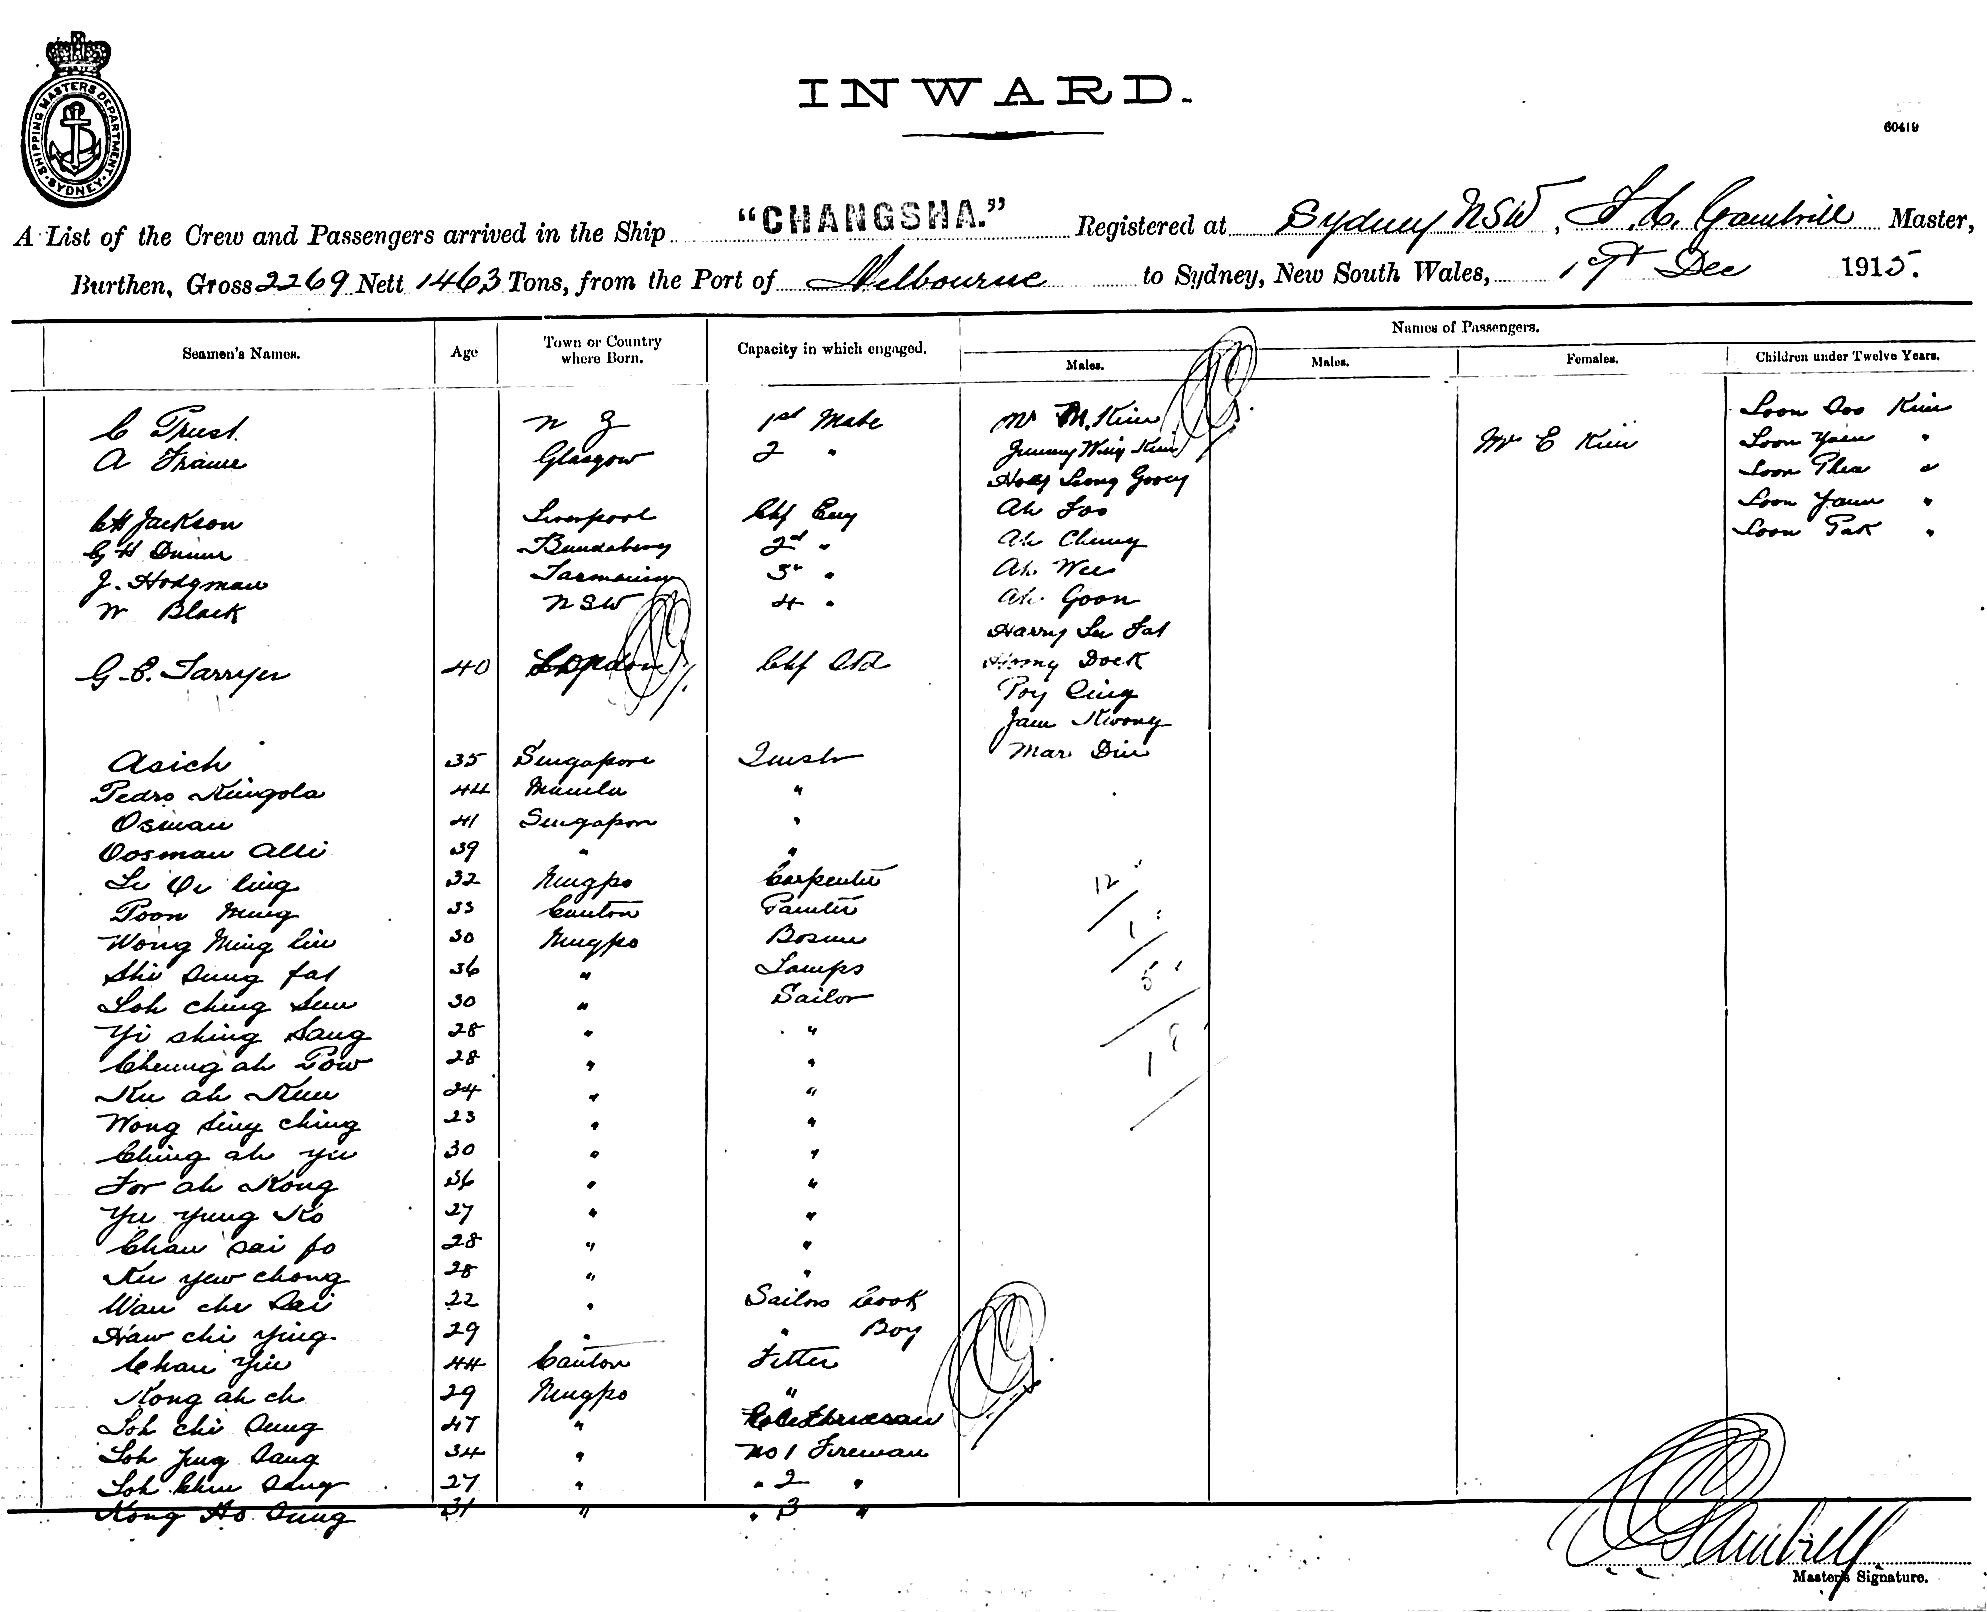 SHIPPING MASTERS DEPARTMENT
SYDNEY
INWARD.
60419
A List of the Crew and Passengers arrived in the Ship "CHANGSHA." Registered at Sydney NSW, Gambrill Master,
Burthen, Gross 2269 Nett 1463 Tons, from the Port of Melbourne to Sydney, New South Wales, Dec 1915.
Seamen's Names. Age Town or Country where Born. Capacity in which engaged. Names of Passengers.
Males. Males. Females. Children under Twelve Years.
C Trust. N Z 1st Mate Mr M. Kim Loon Kim
A Frame Glasgow 2 " Kim E Kim Loon "
Loon "
C H Jackson Liverpool Chf Eng Ah Foo Loon "
G H Bundaberg 2nd " Ah Chung Loon Pak "
J. Hodgman Tasmania 3rd " Ah Wee
W Black NSW 4 " Ah Goon
Harry Lee Fat
G. E. Tarryer 40 London Chf Dock
Poy Ling
Kwong
Asich 35 Singapore Mar Din
Pedro 44 Manila "
Osman 41 Singapore "
Oosman Alli 39 " "
32 Ningpo Carpenter 12
Poon Ming 33 Canton Painter
Wong Ming 30 Ningpo Bosun 1
Shi Sung fat 36 " Lamps 5
Loh ching 30 " Sailor
Yi shing Sang 28 " "
Cheung ah Pow 28 " " 1
Ku ah Kuu 24 " "
Wong Sing ching 23 " "
Ching ah yu 30 " "
For ah Kong 36 " "
Yu Yung Ko 27 " "
Chau Sai fo 28 " "
Ku yew chong 28 " "
Wan che Sai 22 " Sailors Cook
Haw chi Ying. 29 " " Boy
Chau Yiu 44 Canton Fitter
Kong ah ch 29 Ningpo "
Loh chi Sung 47 "
Loh Jung Sang 34 " No 1 Fireman
Loh Chiu Sang 27 " " 2 "
Kong Ho Sung 31 " " 3 "
Gambrill
Master's Signature.